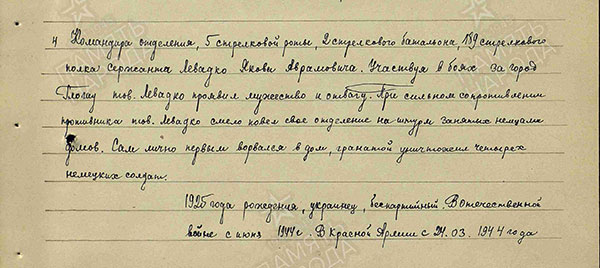 4 Командира отделения, 5 стрелковой роты, 2 стрелкового батальона, 189 стрелкового
полка сержанта Левадко Якова Аврамовича. Участвуя в боях за город
Глогау тов. Левадко проявил мужество и отвагу. При сильном сопротивлении
противника тов. Левадко смело повел свое отделение на штурм занятых немцами
домов. Сам лично первым ворвался в дом, гранатой уничтожил четырех
немецких солдат.
1925 года рождения, украинец, беспартийный. В отечественной
войне с июня 1944 г. В Красной Армии с 24.03.1944 года